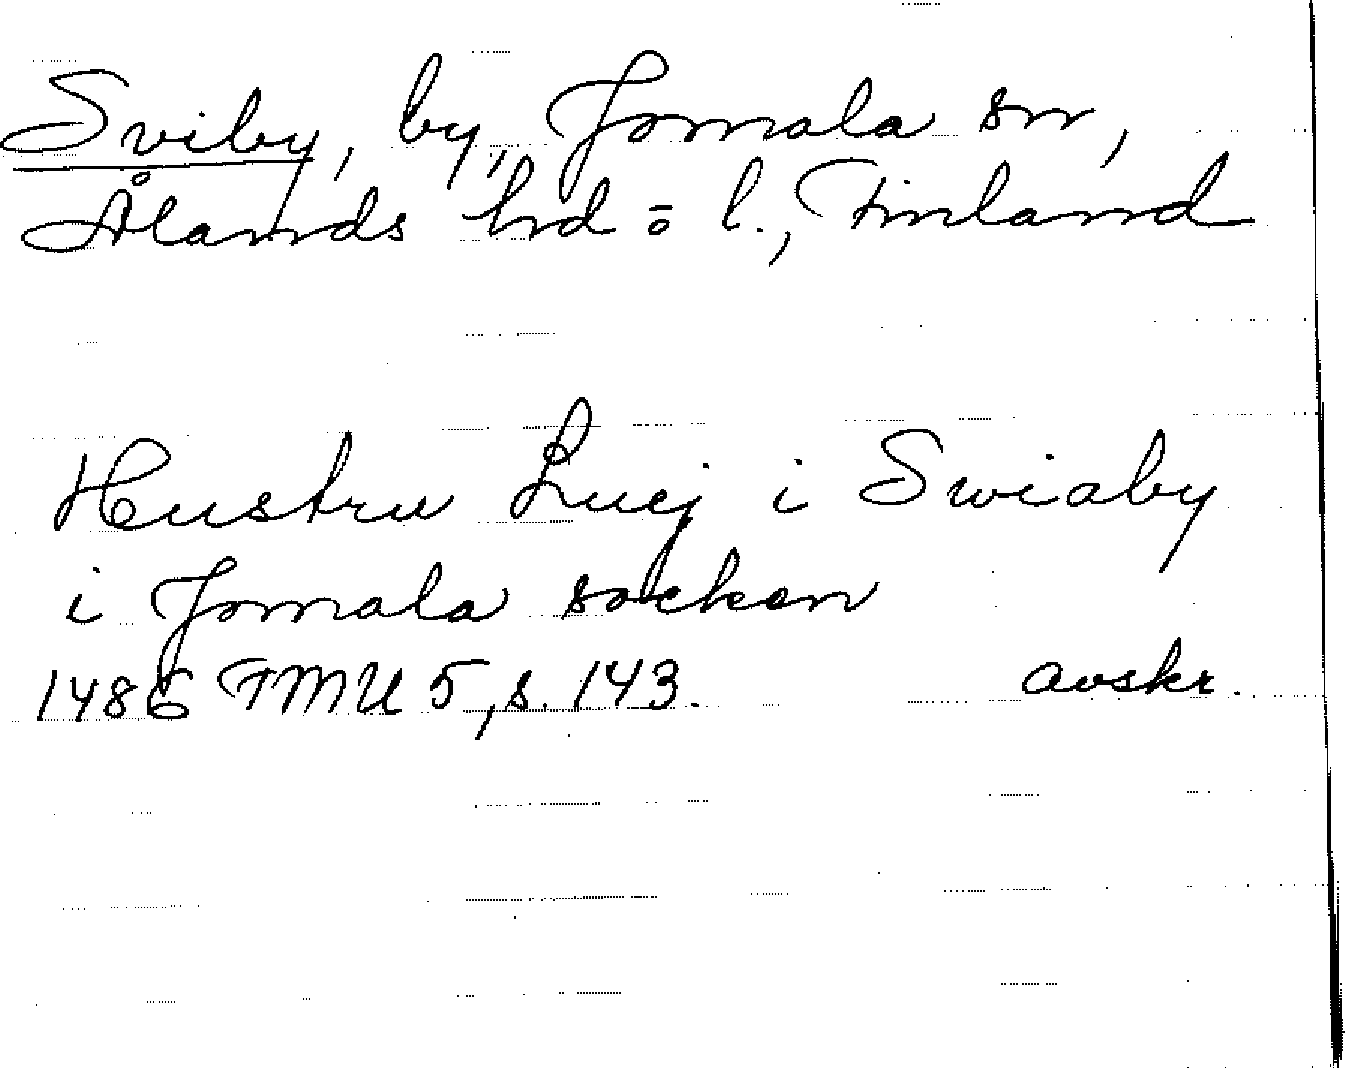 Sviby, by, Jomala sn,
Ålands hd o l., Finland
Hustru Lucj i Swiaby
i Jomala socken
1486 FMU 5, s. 143. avskr.